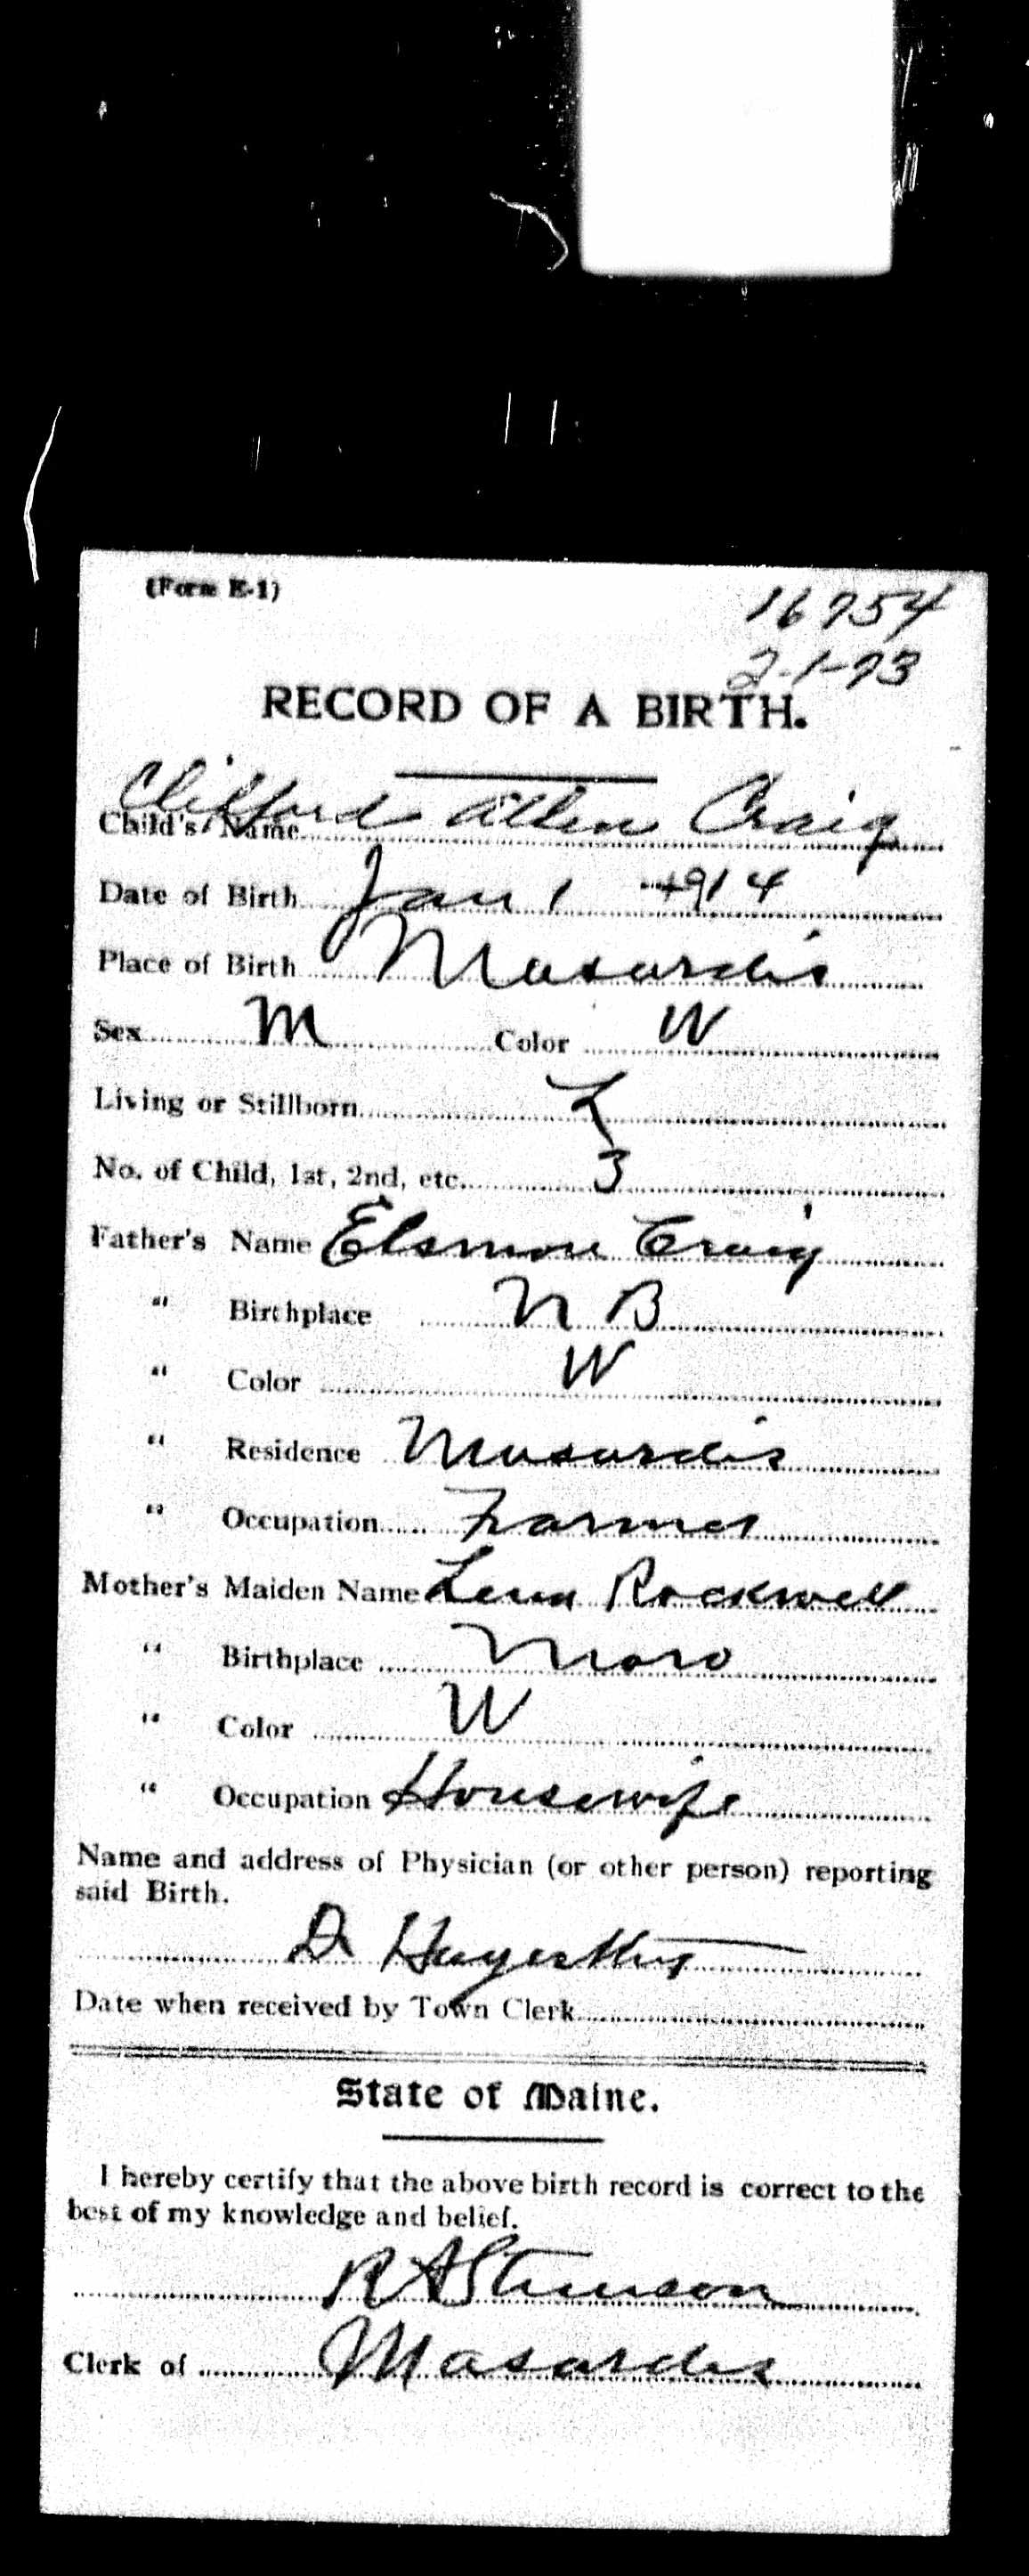 (Form E-1)
16754
2-1-73
RECORD OF A BIRTH.
Child's Name Clifford Allen Craig
Date of Birth Jan 1 1914
Place of Birth Masardis
Sex M Color W
Living or Stillborn L
No. of Child, 1st, 2nd, etc. 3
Father's Name Elsmore Craig
" Birthplace N B
" Color W
" Residence Masardis
" Occupation Farmer
Mother's Maiden Name Lena Rockwell
" Birthplace Moro
" Color W
" Occupation Housewife
Name and address of Physician (or other person) reporting
said Birth.
Dr
Date when received by Town Clerk
State of Maine.
I hereby certify that the above birth record is correct to the
best of my knowledge and belief.
R A Stimson
Clerk of Masardis